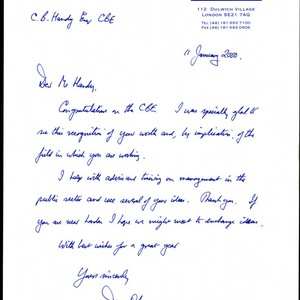 112 DULWICH VILLAGE
LONDON SE21 7AQ
TEL (44) 181 693 7100
FAX (44) 181 693 0906
C.B. Handy Esq CBE
11 January 2000.
Dear Mr Handy,
Congratulations on the CBE. I was specially glad to
see this recognition of your worth and, by implication, of the
field in which you are working.
I help with advice and training on management in the
public sector and use several of your ideas. Thank you. If
you are near London I hope we might meet to exchange ideas.
With best wishes for a great year
Yours sincerely